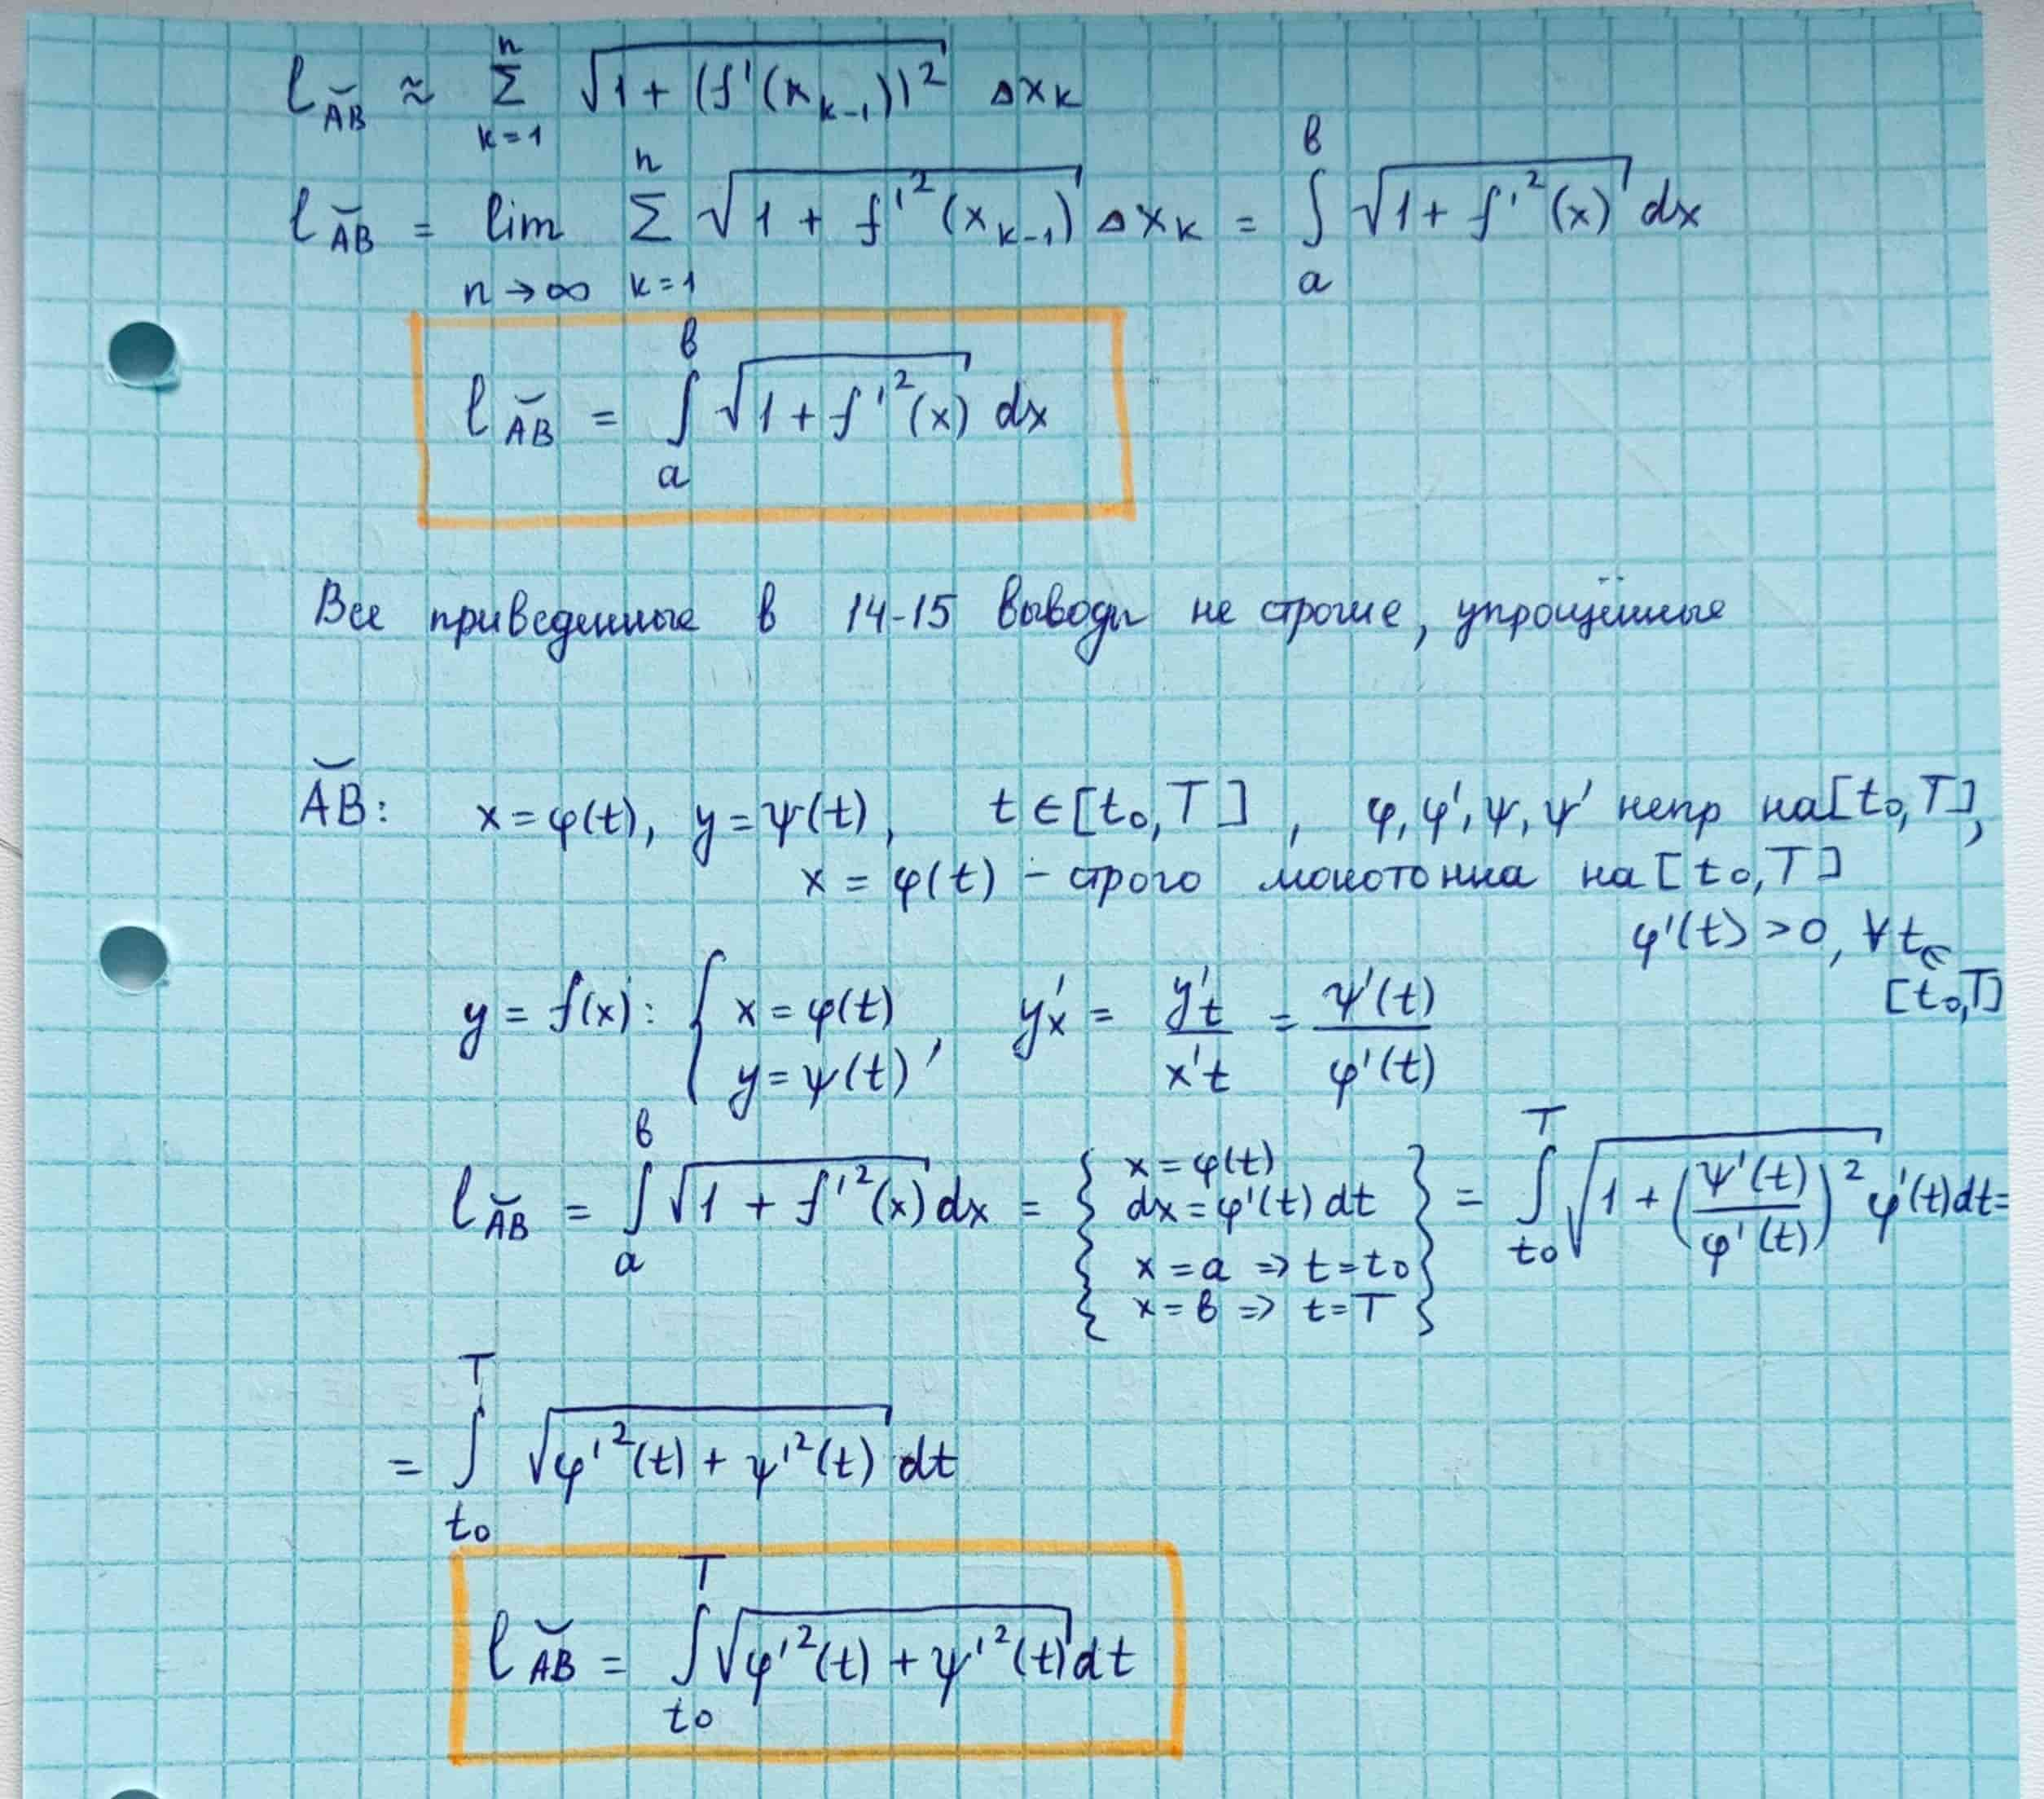 l_{\breve{AB}} ≈ \sum_{k=1}^{n} \sqrt{1 + (f'(x_{k-1}))^2} Δx_k
l_{\breve{AB}} = \lim_{n→∞} \sum_{k=1}^{n} \sqrt{1 + f'^2(x_{k-1})} Δx_k = \int_a^в \sqrt{1 + f'^2(x)} dx
l_{\breve{AB}} = \int_a^в \sqrt{1 + f'^2(x)} dx
Все приведенные в 14-15 выводы не строгие, упрощённые
\breve{AB}: x = φ(t), y = ψ(t), t ∈ [t_0, T], φ, φ', ψ, ψ' непр на [t_0, T],
x = φ(t) – строго монотонна на [t_0, T]
φ'(t) > 0, ∀ t ∈
[t_0, T]
y = f(x): { x = φ(t) y = ψ(t) , y'_x = \frac{y'_t}{x'_t} = \frac{ψ'(t)}{φ'(t)}
l_{\breve{AB}} = \int_a^в \sqrt{1 + f'^2(x)} dx = { x = φ(t) dx = φ'(t) dt x = a ⇒ t = t_0 x = в ⇒ t = T } = \int_{t_0}^T \sqrt{1 + (\frac{ψ'(t)}{φ'(t)})^2} φ'(t) dt =
= \int_{t_0}^T \sqrt{φ'^2(t) + ψ'^2(t)} dt
l_{\breve{AB}} = \int_{t_0}^T \sqrt{φ'^2(t) + ψ'^2(t)} dt